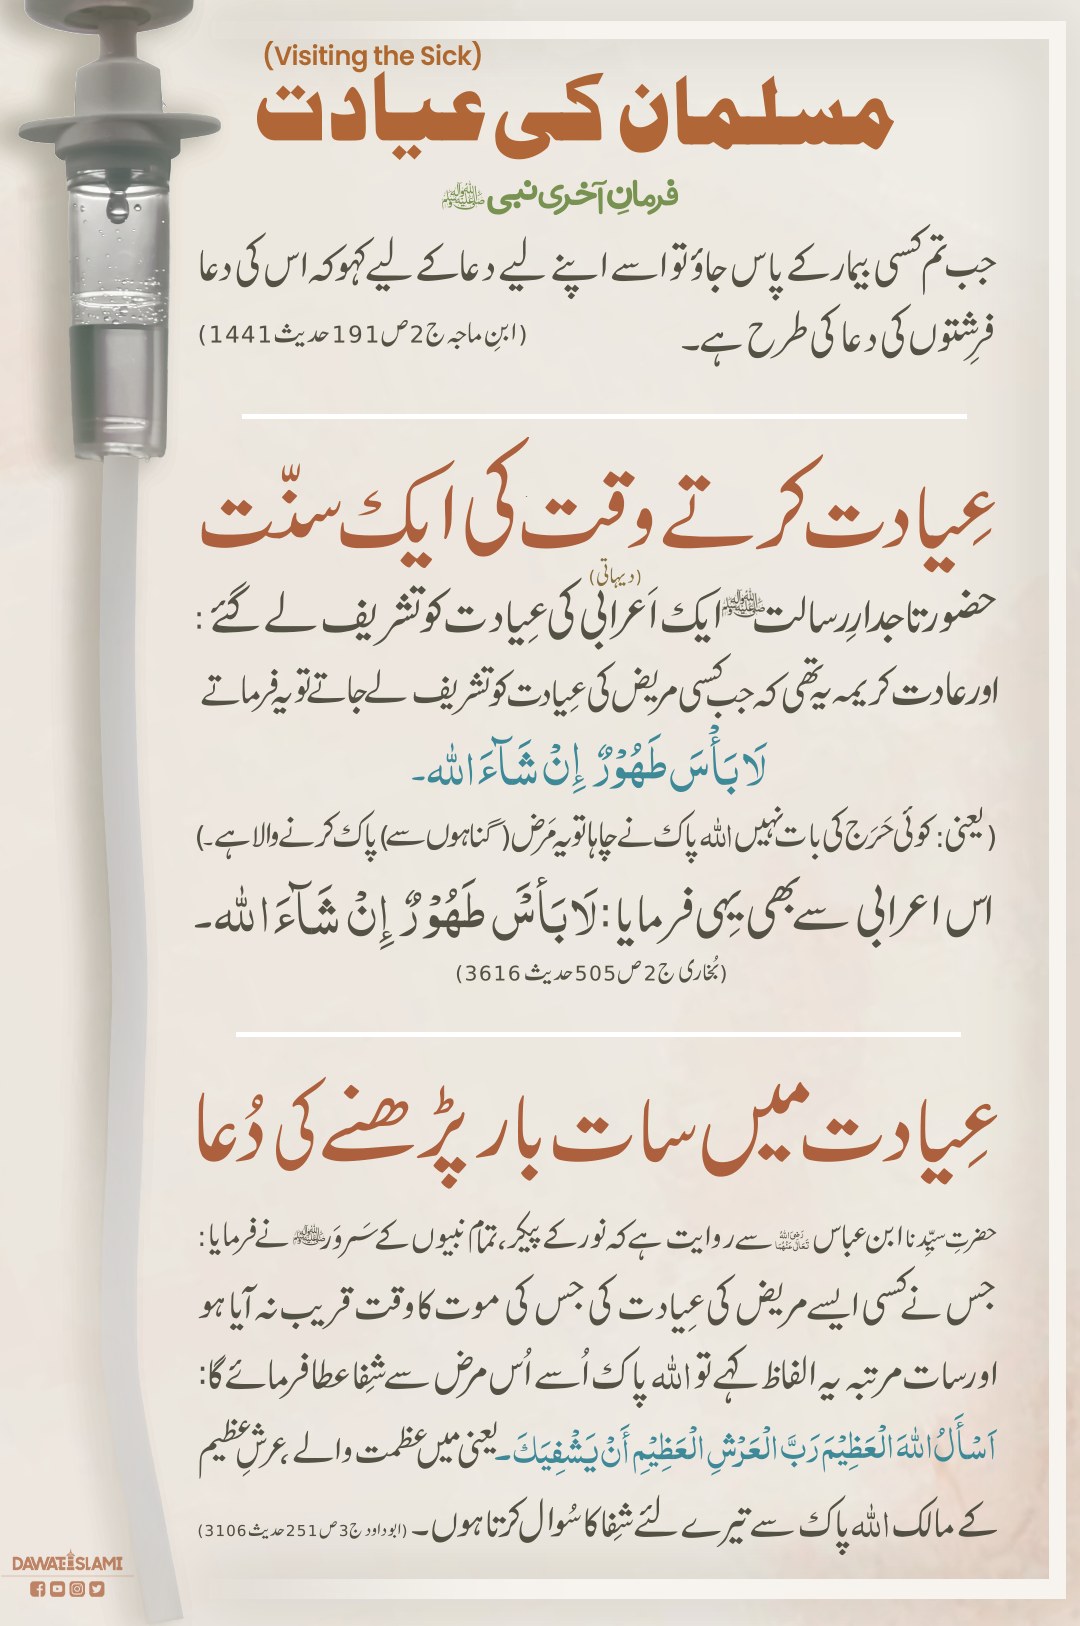 (Visiting the Sick)
مسلمان کی عیادت
فرمانِ آخری نبی ﷺ
جب تم کسی بیمار کے پاس جاؤ تو اسے اپنے لیے دعا کے لیے کہو کہ اس کی دعا
فرِشتوں کی دعا کی طرح ہے۔ (ابنِ ماجہ ج2 ص191 حدیث 1441)
عِیادت کرتے وقت کی ایک سنّت
حضور تاجدارِ رسالت ﷺ ایک اَعرابی (دیہاتی) کی عِیادت کو تشریف لے گئے :
اور عادت کریمہ یہ تھی کہ جب کسی مریض کی عِیادت کو تشریف لے جاتے تو یہ فرماتے
لَا بَأْسَ طَهُوْرٌ اِنْ شَآءَ اللہ۔
(یعنی: کوئی حَرَج کی بات نہیں اللہ پاک نے چاہا تو یہ مَرَض (گناہوں سے) پاک کرنے والا ہے۔)
اس اعرابی سے بھی یِہی فرمایا: لَا بَأْسَ طَهُوْرٌ اِنْ شَآءَ اللہ۔
(بُخاری ج2 ص505 حدیث 3616)
عِیادت میں سات بار پڑھنے کی دُعا
حضرتِ سیِّدنا ابن عباس رَضِیَ اللہُ تَعَالٰی عَنْہُمَا سے روایت ہے کہ نور کے پیکر، تمام نبیوں کے سَروَر ﷺ نے فرمایا:
جس نے کسی ایسے مریض کی عِیادت کی جس کی موت کا وقت قریب نہ آیا ہو
اور سات مرتبہ یہ الفاظ کہے تو اللہ پاک اُسے اُس مرض سے شِفا عطا فرمائے گا:
اَسْأَلُ اللہَ الْعَظِیْمَ رَبَّ الْعَرْشِ الْعَظِیْمِ أَنْ یَشْفِیَكَ۔ یعنی میں عظمت والے ، عرشِ عظیم
کے مالک اللہ پاک سے تیرے لئے شِفا کا سُوال کرتا ہوں۔ (ابوداود ج3 ص251 حدیث 3106)
DAWATEISLAMI